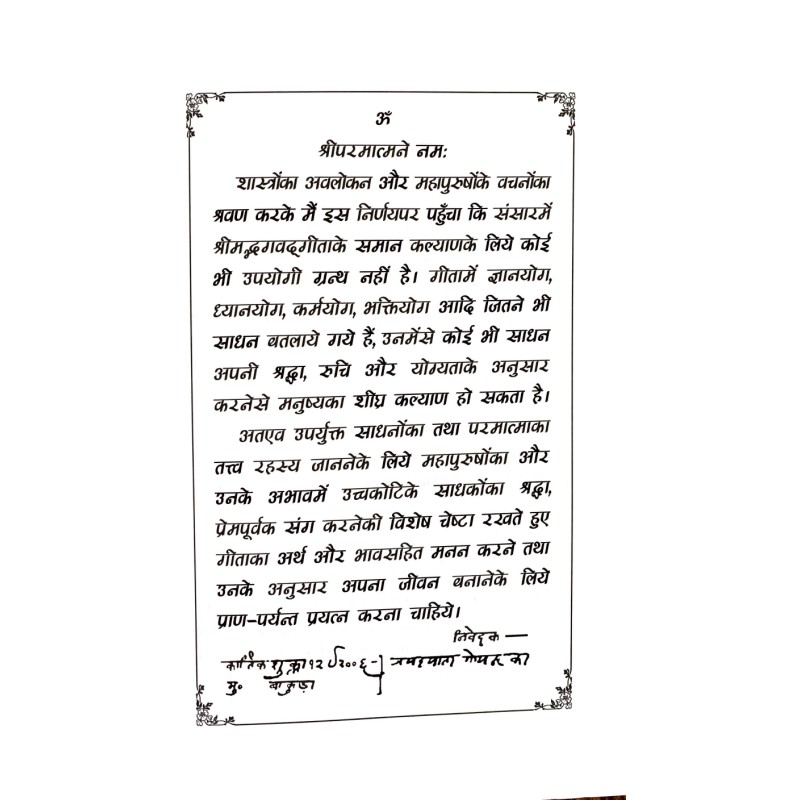 ॐ
श्रीपरमात्मने नमः
शास्त्रोंका अवलोकन और महापुरुषोंके वचनोंका
श्रवण करके मैं इस निर्णयपर पहुँचा कि संसारमें
श्रीमद्भगवद्‌गीताके समान कल्याणके लिये कोई
भी उपयोगी ग्रन्थ नहीं है। गीतामें ज्ञानयोग,
ध्यानयोग, कर्मयोग, भक्तियोग आदि जितने भी
साधन बतलाये गये हैं, उनमेंसे कोई भी साधन
अपनी श्रद्धा, रुचि और योग्यताके अनुसार
करनेसे मनुष्यका शीघ्र कल्याण हो सकता है।
अतएव उपर्युक्त साधनोंका तथा परमात्माका
तत्त्व रहस्य जाननेके लिये महापुरुषोंका और
उनके अभावमें उच्चकोटिके साधकोंका श्रद्धा,
प्रेमपूर्वक संग करनेकी विशेष चेष्टा रखते हुए
गीताका अर्थ और भावसहित मनन करने तथा
उनके अनुसार अपना जीवन बनानेके लिये
प्राण-पर्यन्त प्रयत्न करना चाहिये।
निवेदक —
कार्तिक शुक्ला १२ २००६ जयदयाल गोयन्दका
मु० बांकुड़ा